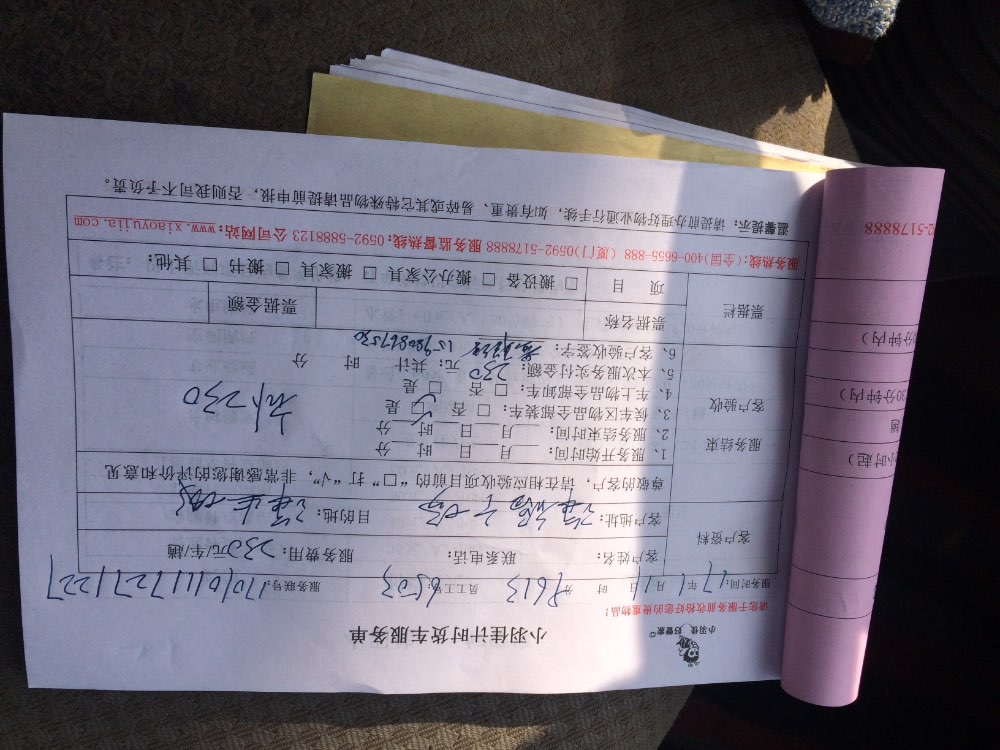 小羽佳 好管家
小羽佳计时货车服务单
请您于服务前收捡好您的贵重物品!
服务时间: 17年1月11日 时 分 员工工号: 服务联号:
客户资料
客户姓名: 联系电话: 服务费用: 230元/车/趟
客户地址: 目的地:
尊敬的客户, 请在相应验收项目前的 “□” 打 “√”, 非常感谢您的评价和意见
服务结束
客户验收
1、服务开始时间: 月 日 时 分
2、服务结束时间: 月 日 时 分
3、候车区物品全部装: □ 否 □ 是
4、车上物品全部卸: □ 否 □ 是
5、本次服务实付金额: 230 元; 共计 时 分
6、客户验收签字:
票据栏
票据名称 票据金额
项 目 □ 搬设备 □ 搬办公家具 □ 搬家具 □ 搬书 □ 其他:
服务热线:(全国)400-6655-888 (厦门)0592-5178888 服务监督热线: 0592-5888123 公司网站: www.xiaoyujia.com
温馨提示: 请提前办理好物业通行手续, 如有贵重、易碎或其它特殊物品请提前申报, 否则我司不予负责。
小时起)
30分钟内)
0分钟内)
92-5178888